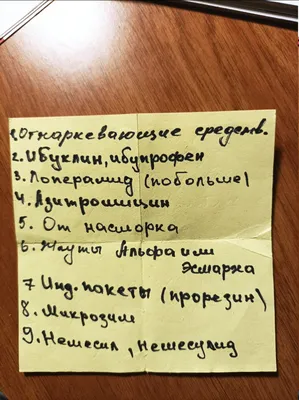 1.Отхаркевающие средств.
2. Ибуклин, ибупрофен
3. Лоперамид (побольше)
4. Азитромицин
5. От насморка
6. Жгуты Альфа или
Эсмарха
7 Инд. пакеты (прорезин)
8. Микрозим
9. Немесил, немесулид